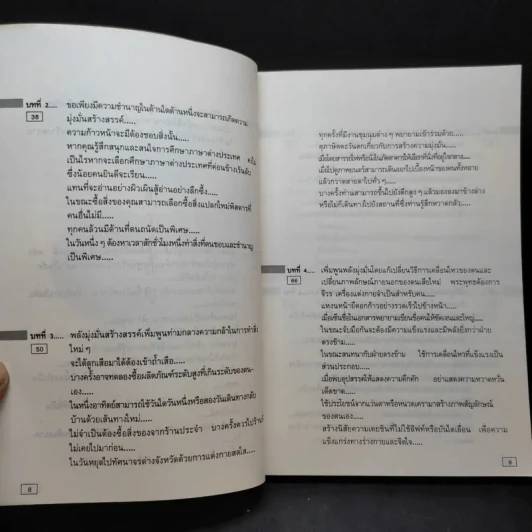 บทที่ 2.... ขอเพียงมีความชำนาญในด้านใดด้านหนึ่งจะสามารถเกิดความ
38 มุ่งมั่นสร้างสรรค์.....
ความก้าวหน้าจะมีต้องชอบสิ่งนั้น.....
หากคุณรู้สึกสนุกและสนใจการศึกษาภาษาต่างประเทศ
เป็นไรหากจะเลือกศึกษาภาษาต่างประเทศที่ค่อนข้าง
ซึ่งน้อยคนยินดีจะเรียน.....
แทนที่จะอ่านอย่างผิวเผินสู้อ่านอย่างลึกซึ้ง.....
ในขณะซื้อสิ่งของคุณสามารถเลือกซื้อสิ่งแปลกใหม่พิสดารที่
คนอื่นไม่มี.....
ทุกคนล้วนมีด้านที่ตนถนัดเป็นพิเศษ.....
ในวันหนึ่ง ๆ ต้องหาเวลาสักชั่วโมงหนึ่งทำสิ่งที่ตนชอบและชำนาญ
เป็นพิเศษ.....
บทที่ 3.... พลังมุ่งมั่นสร้างสรรค์เพิ่มพูนท่ามกลางความกล้าในการทำสิ่ง
50 ใหม่ ๆ
จะได้ลูกเสือมาได้ต้องเข้าถ้ำเสือ.....
บางครั้งอาจทดลองซื้อผลิตภัณฑ์ระดับสูงที่เกินระดับของตน-
เอง.....
ในหนึ่งอาทิตย์สามารถใช้วันใดวันหนึ่งหรือสองวันเดินทางกลับ
บ้านด้วยเส้นทางใหม่.....
ไม่จำเป็นต้องซื้อสิ่งของจากร้านประจำ บางครั้งควรไปร้านที่
ไม่เคยไปมาก่อน.....
ในวันหยุดไปทัศนาจรต่างจังหวัดด้วยการแต่งกายสดใส.....
8
ทุกครั้งที่มีงานชุมนุมต่าง ๆ พยายามเข้าร่วมด้วย.....
สุภาษิตตะวันตกเกี่ยวกับการสร้างความมุ่งมั่น.....
เมื่อไปดูภาพยนตร์สามารถเดินออกไปเบื้องหน้าของคนทั้งหลาย
แล้วกวาดสายตาไปทั่ว ๆ.....
บางครั้งท่านสามารถขึ้นไปยังตึกสูง ๆ แล้วมองลงมาข้างล่าง
หรือไม่ก็เดินทางไปยังสถานที่ซึ่งท่านรู้สึกหวาดกลัว.....
บทที่ 4.... เพิ่มพูนพลังมุ่งมั่นโดยแก้เปลี่ยนวิธีการเคลื่อนไหวของตนและ
66 เปลี่ยนภาพลักษณ์ภายนอกของตนเสียใหม่ พระพุทธต้องการ
จีวร เครื่องแต่งกายจำเป็นสำหรับคน.....
แหงนหน้ายืดอกก้าวอย่างรวดเร็วไปข้างหน้า.....
เมื่อเซ็นชื่อในเอกสารพยายามเขียนชื่อตนให้ชัดเจนและใหญ่.....
ในขณะจับมือกันจะต้องมีความแข็งแรงและมีพลังยิ่งกว่าฝ่าย
ตรงข้าม.....
ในขณะสนทนากับฝ่ายตรงข้าม ใช้การเคลื่อนไหวที่แข็งแรงเป็น
ส่วนประกอบ.....
เมื่อพบอุปสรรคให้แสดงความคึกคัก อย่าแสดงความหวาดหวั่น
เด็ดขาด.....
ใช้ประโยชน์จากแว่นตาหรือหนวดเครามาสร้างภาพสัญลักษณ์
ของตนเอง.....
สร้างนิสัยความเคยชินที่ไม่ใช้ลิฟท์หรือบันไดเลื่อน เพื่อความ
แข็งแกร่งทางร่างกายและจิตใจ.....
9